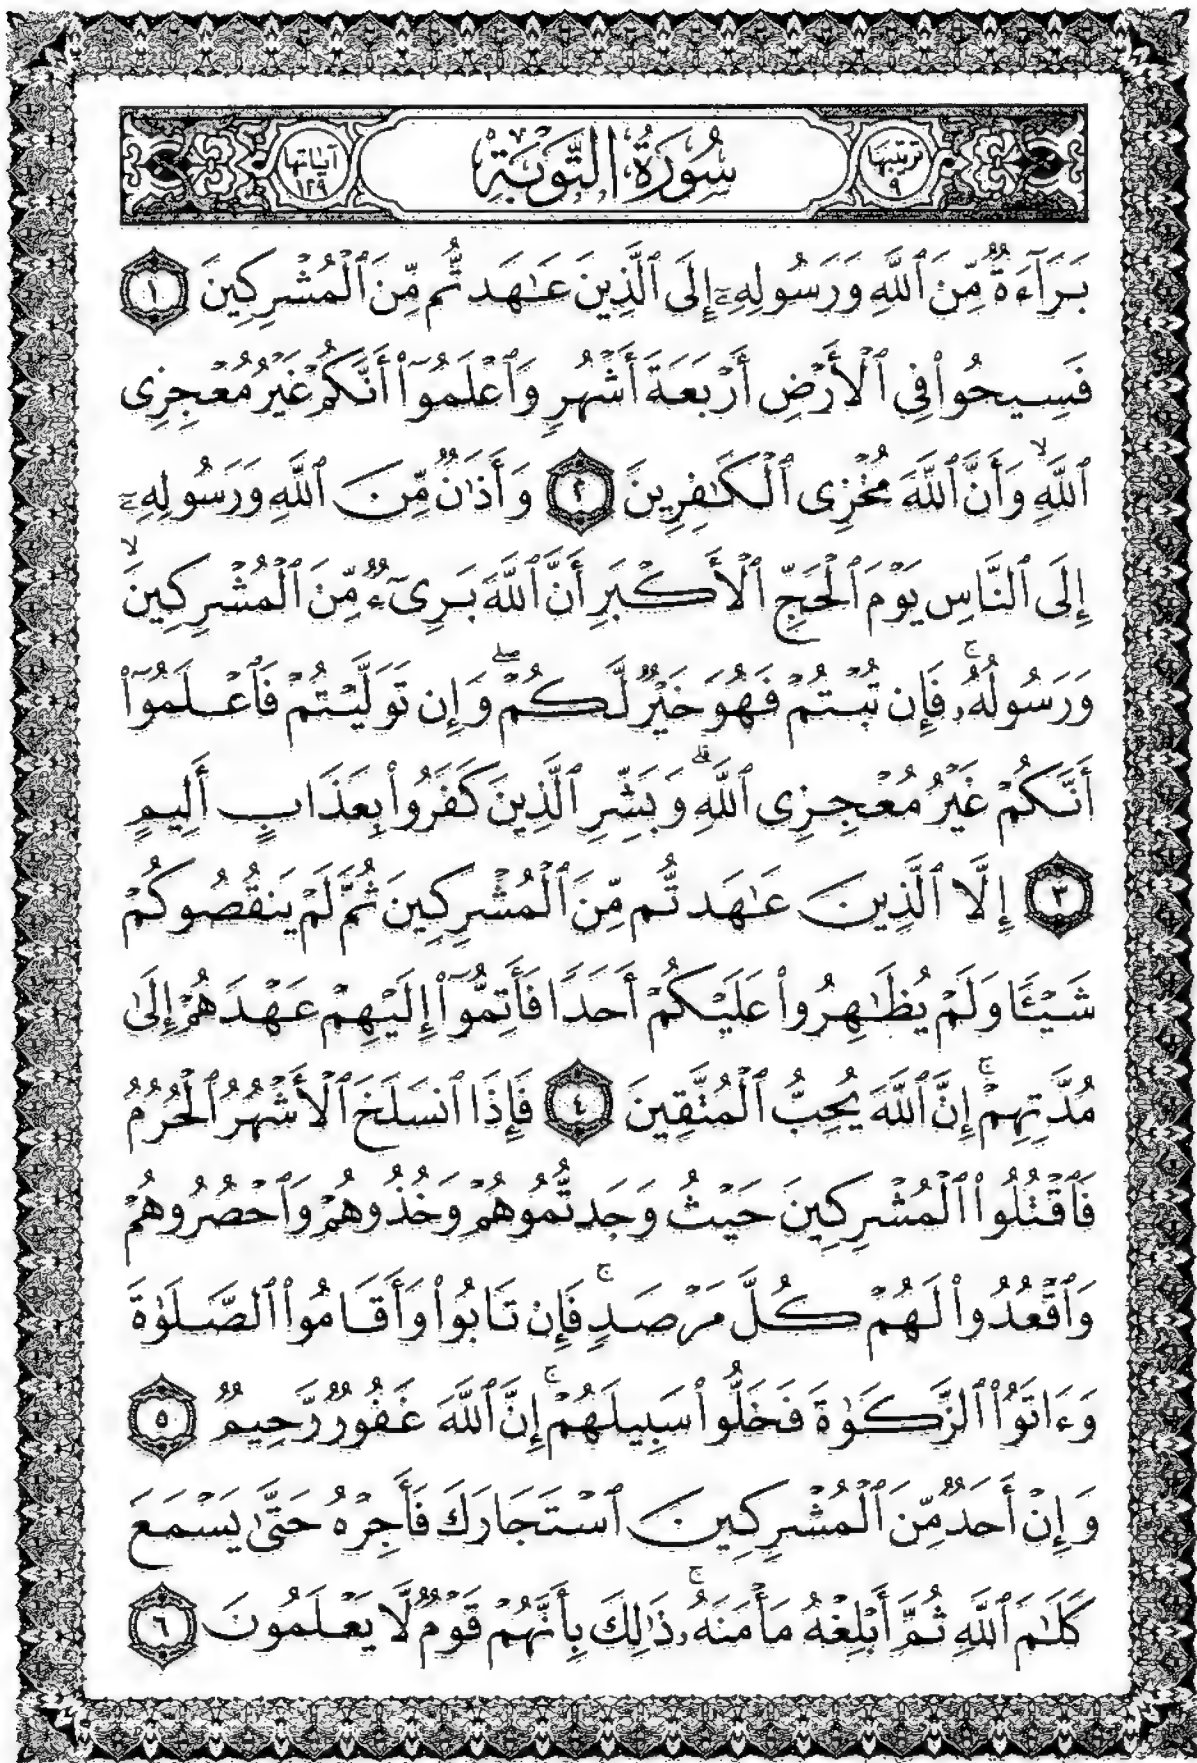 ترتيبها ٩ سُورَةُ التَّوْبَةِ آياتها ١٢٩
بَرَآءَةٌ مِّنَ ٱللَّهِ وَرَسُولِهِۦٓ إِلَى ٱلَّذِينَ عَـٰهَدتُّم مِّنَ ٱلْمُشْرِكِينَ ١
فَسِيحُوا۟ فِى ٱلْأَرْضِ أَرْبَعَةَ أَشْهُرٍ وَٱعْلَمُوٓا۟ أَنَّكُمْ غَيْرُ مُعْجِزِى
ٱللَّهِ ۙ وَأَنَّ ٱللَّهَ مُخْزِى ٱلْكَـٰفِرِينَ ٢ وَأَذَٰنٌ مِّنَ ٱللَّهِ وَرَسُولِهِۦٓ
إِلَى ٱلنَّاسِ يَوْمَ ٱلْحَجِّ ٱلْأَكْبَرِ أَنَّ ٱللَّهَ بَرِىٓءٌ مِّنَ ٱلْمُشْرِكِينَ ۙ
وَرَسُولُهُۥ ۚ فَإِن تُبْتُمْ فَهُوَ خَيْرٌ لَّكُمْ ۖ وَإِن تَوَلَّيْتُمْ فَٱعْلَمُوٓا۟
أَنَّكُمْ غَيْرُ مُعْجِزِى ٱللَّهِ ۗ وَبَشِّرِ ٱلَّذِينَ كَفَرُوا۟ بِعَذَابٍ أَلِيمٍ
٣ إِلَّا ٱلَّذِينَ عَـٰهَدتُّم مِّنَ ٱلْمُشْرِكِينَ ثُمَّ لَمْ يَنقُصُوكُمْ
شَيْـًٔا وَلَمْ يُظَـٰهِرُوا۟ عَلَيْكُمْ أَحَدًا فَأَتِمُّوٓا۟ إِلَيْهِمْ عَهْدَهُمْ إِلَىٰ
مُدَّتِهِمْ ۚ إِنَّ ٱللَّهَ يُحِبُّ ٱلْمُتَّقِينَ ٤ فَإِذَا ٱنسَلَخَ ٱلْأَشْهُرُ ٱلْحُرُمُ
فَٱقْتُلُوا۟ ٱلْمُشْرِكِينَ حَيْثُ وَجَدتُّمُوهُمْ وَخُذُوهُمْ وَٱحْصُرُوهُمْ
وَٱقْعُدُوا۟ لَهُمْ كُلَّ مَرْصَدٍ ۚ فَإِن تَابُوا۟ وَأَقَامُوا۟ ٱلصَّلَوٰةَ
وَءَاتَوُا۟ ٱلزَّكَوٰةَ فَخَلُّوا۟ سَبِيلَهُمْ ۚ إِنَّ ٱللَّهَ غَفُورٌ رَّحِيمٌ ٥
وَإِنْ أَحَدٌ مِّنَ ٱلْمُشْرِكِينَ ٱسْتَجَارَكَ فَأَجِرْهُ حَتَّىٰ يَسْمَعَ
كَلَـٰمَ ٱللَّهِ ثُمَّ أَبْلِغْهُ مَأْمَنَهُۥ ۚ ذَٰلِكَ بِأَنَّهُمْ قَوْمٌ لَّا يَعْلَمُونَ ٦